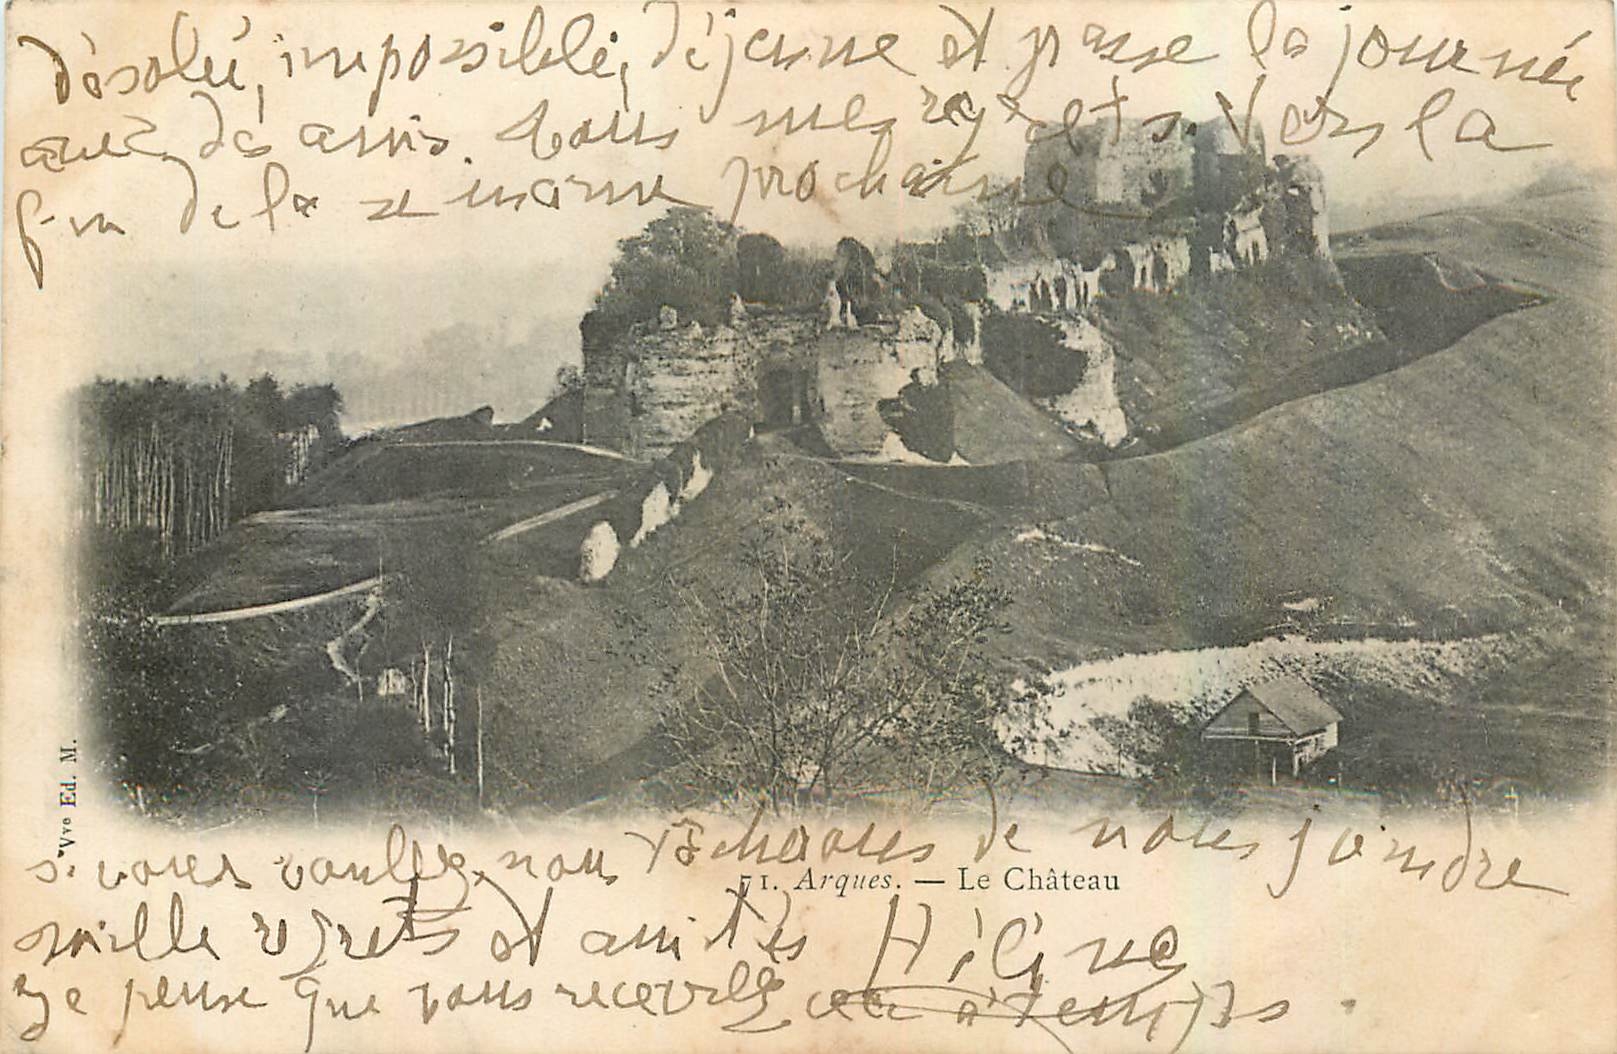 Désolée, impossible, déjeune et passe la journée
avec des amis. Tous mes regrets. Vers la
fin de la semaine prochaine
si vous voulez, nous tâcherons de nous joindre
71. Arques. — Le Château
mille regrets et amitiés Hélène
Je pense que vous recevrez ceci à temps.
Vve Ed. M.